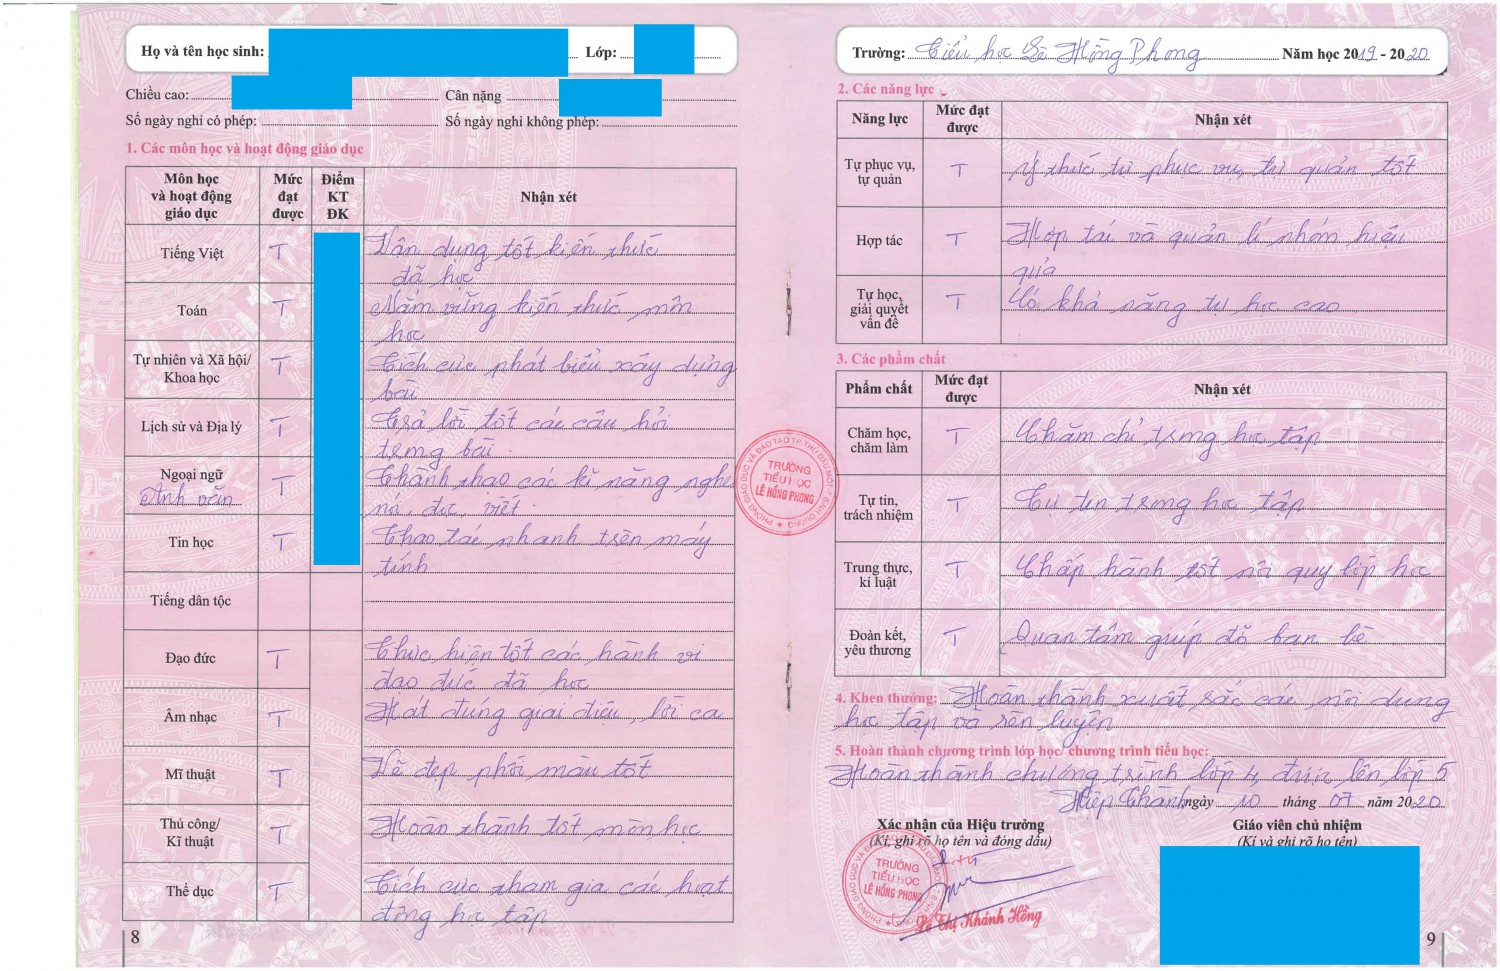 Họ và tên học sinh: Lớp:
Chiều cao: Cân nặng
Số ngày nghỉ có phép: Số ngày nghỉ không phép:
1. Các môn học và hoạt động giáo dục
Môn học và hoạt động giáo dục Mức đạt được Điểm KT ĐK Nhận xét
Tiếng Việt T Vận dụng tốt kiến thức
đã học
Toán T Nắm vững kiến thức môn
học
Tự nhiên và Xã hội/ Khoa học T Tích cực phát biểu xây dựng
bài
Lịch sử và Địa lý T Trả lời tốt các câu hỏi
trong bài.
Ngoại ngữ Anh văn T Thành thạo các kĩ năng nghe
nói, đọc, viết.
Tin học T Thao tác nhanh trên máy
tính
Tiếng dân tộc
Đạo đức T Thực hiện tốt các hành vi
đạo đức đã học
Âm nhạc T Hát đúng giai điệu, lời ca
Mĩ thuật T Vẽ đẹp phối màu tốt
Thủ công/ Kĩ thuật T Hoàn thành tốt môn học
Thể dục T Tích cực tham gia các hoạt
động học tập
8
Trường: Tiểu học Lê Hồng Phong Năm học 2019 - 2020
2. Các năng lực
Năng lực Mức đạt được Nhận xét
Tự phục vụ, tự quản T Ý thức tự phục vụ, tự quản tốt
Hợp tác T Hợp tác và quản lí nhóm hiệu
quả
Tự học, giải quyết vấn đề T Có khả năng tự học cao
3. Các phẩm chất
Phẩm chất Mức đạt được Nhận xét
Chăm học, chăm làm T Chăm chỉ trong học tập
Tự tin, trách nhiệm T Tự tin trong học tập
Trung thực, kỉ luật T Chấp hành tốt nội quy lớp học
Đoàn kết, yêu thương T Quan tâm giúp đỡ bạn bè
4. Khen thưởng: Hoàn thành xuất sắc các nội dung
học tập và rèn luyện
5. Hoàn thành chương trình lớp học/ chương trình tiểu học:
Hoàn thành chương trình lớp 4, được lên lớp 5
Hiệp Thành ngày 10 tháng 07 năm 2020
Xác nhận của Hiệu trưởng Giáo viên chủ nhiệm
(Kí, ghi rõ họ tên và đóng dấu) (Kí và ghi rõ họ tên)
Lê Thị Khánh Hồng
9
PHÒNG GIÁO DỤC VÀ ĐÀO TẠO TP. THỦ DẦU MỘT T. BÌNH DƯƠNG
TRƯỜNG
TIỂU HỌC
LÊ HỒNG PHONG
TRƯỜNG
TIỂU HỌC
LÊ HỒNG PHONG